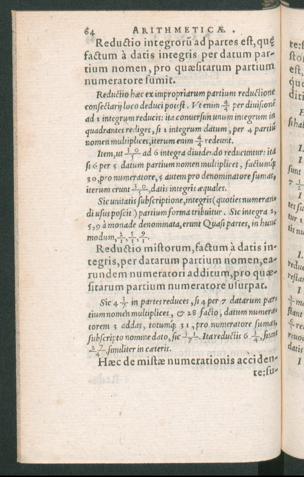 64 ARITHMETICÆ.
Reductio integrorū ad partes est, quę
factum à datis integris per datum par-
tium nomen, pro quæsitarum partium
numeratore sumit.
Reductio hæc ex impropriarum partium reductione
consectarij loco deduci potest. Vt enim per diuisionē
ad 2 integrum reducit: ita conuersim unum integrum in
quadrantes rediges, si 2 integrum datum, per 4 partiū
nomen multiplices, iterum enim redeunt.
Item, ut ad 6 integra diuidendo reducuntur: ita
si 6 per 5 datum partium nomen multiplices, factumq́;
30, pro numeratore, 5 autem pro denominatore sumas,
iterum erunt datis integris æquales.
Sic unitatis subscriptione, integris (quoties numeran-
di usus poscit) partium forma tribuitur. Sic integra 2,
5, 9 à monade denominata, erunt Quasi partes, in hunc
modum,
Reductio mistorum, factum à datis in-
tegris, per datarum partium nomen, ea-
rundem numeratori additum, pro quæ-
sitarum partium numeratore usurpat.
Sic 4 in partes reduces, si 4 per 7 datarum par-
tium nomen multiplices, & 28 facto, datum numera-
torem 3 addas, totumq́; 31, pro numeratore sumas,
subscripto nomine dato, sic Ita reductis 6
similiter in cæteris.
Hæc de mistæ numerationis acciden-
te: su-